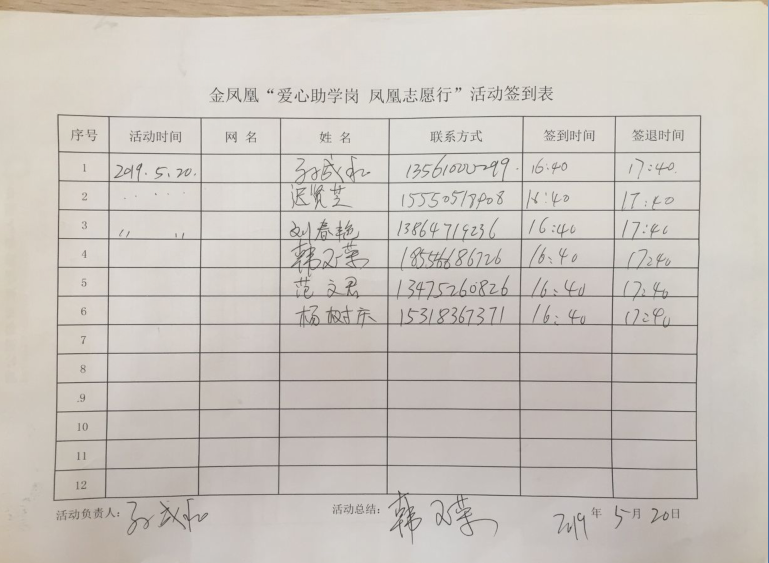 金凤凰“爱心助学岗 凤凰志愿行”活动签到表
序号 活动时间 网 名 姓 名 联系方式 签到时间 签退时间
1 2019.5.20. 孙成 16:40 17:40.
2 迟贤芝 16:40 17:40
3 〃 〃 刘春艳 13864719236 16:40 17:40
4 韩 荣 18556686726 16:40 17:40
5 范文君 13475260826 16:40 17:40
6 杨树庆 15318367371 16:40 17:40
7
8
9
10
11
12
活动负责人: 孙成 活动总结: 韩 荣 2019年5月20日